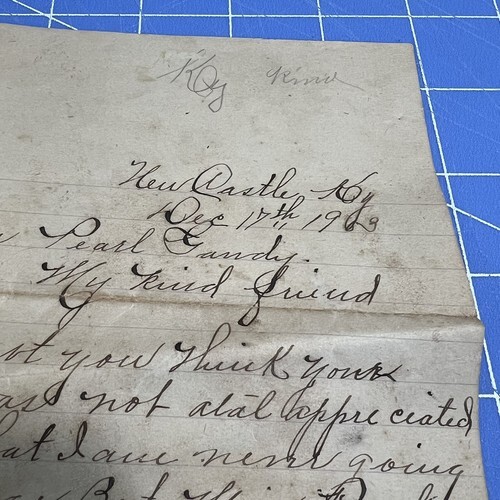 Ky Kind
New Castle, Ky
Dec 17th, 1903
Pearl Gandy.
My Kind friend
you think your
not atal appreciated
I am never going